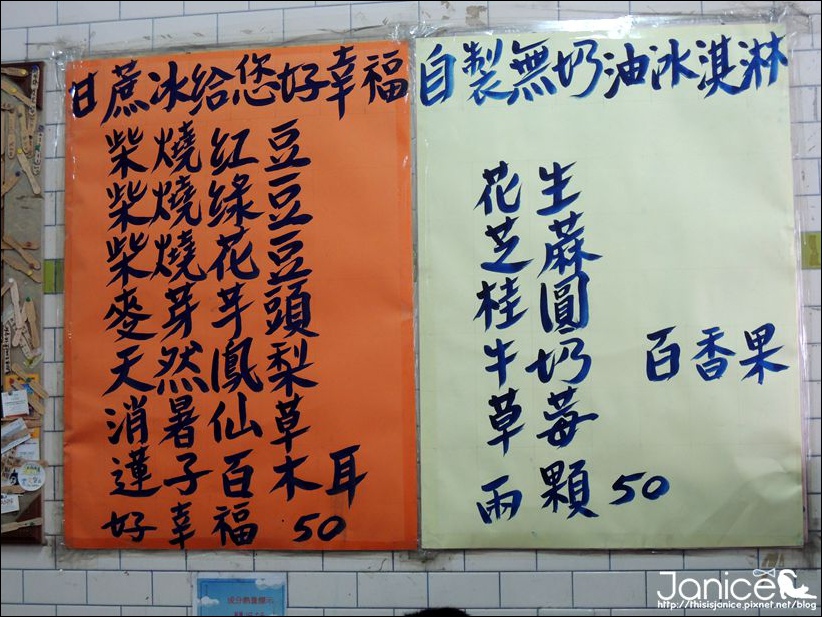 甘蔗冰給您好幸福
柴燒紅豆
柴燒綠豆
柴燒花豆
麥芽芋頭
天然鳳梨
消暑仙草
蓮子百木耳
好幸福 50
自製無奶油冰淇淋
花生
芝蔴
桂圓
牛奶 百香果
草莓
兩顆50
成分熱量標示
Janice
http://thisisjanice.pixnet.net/blog